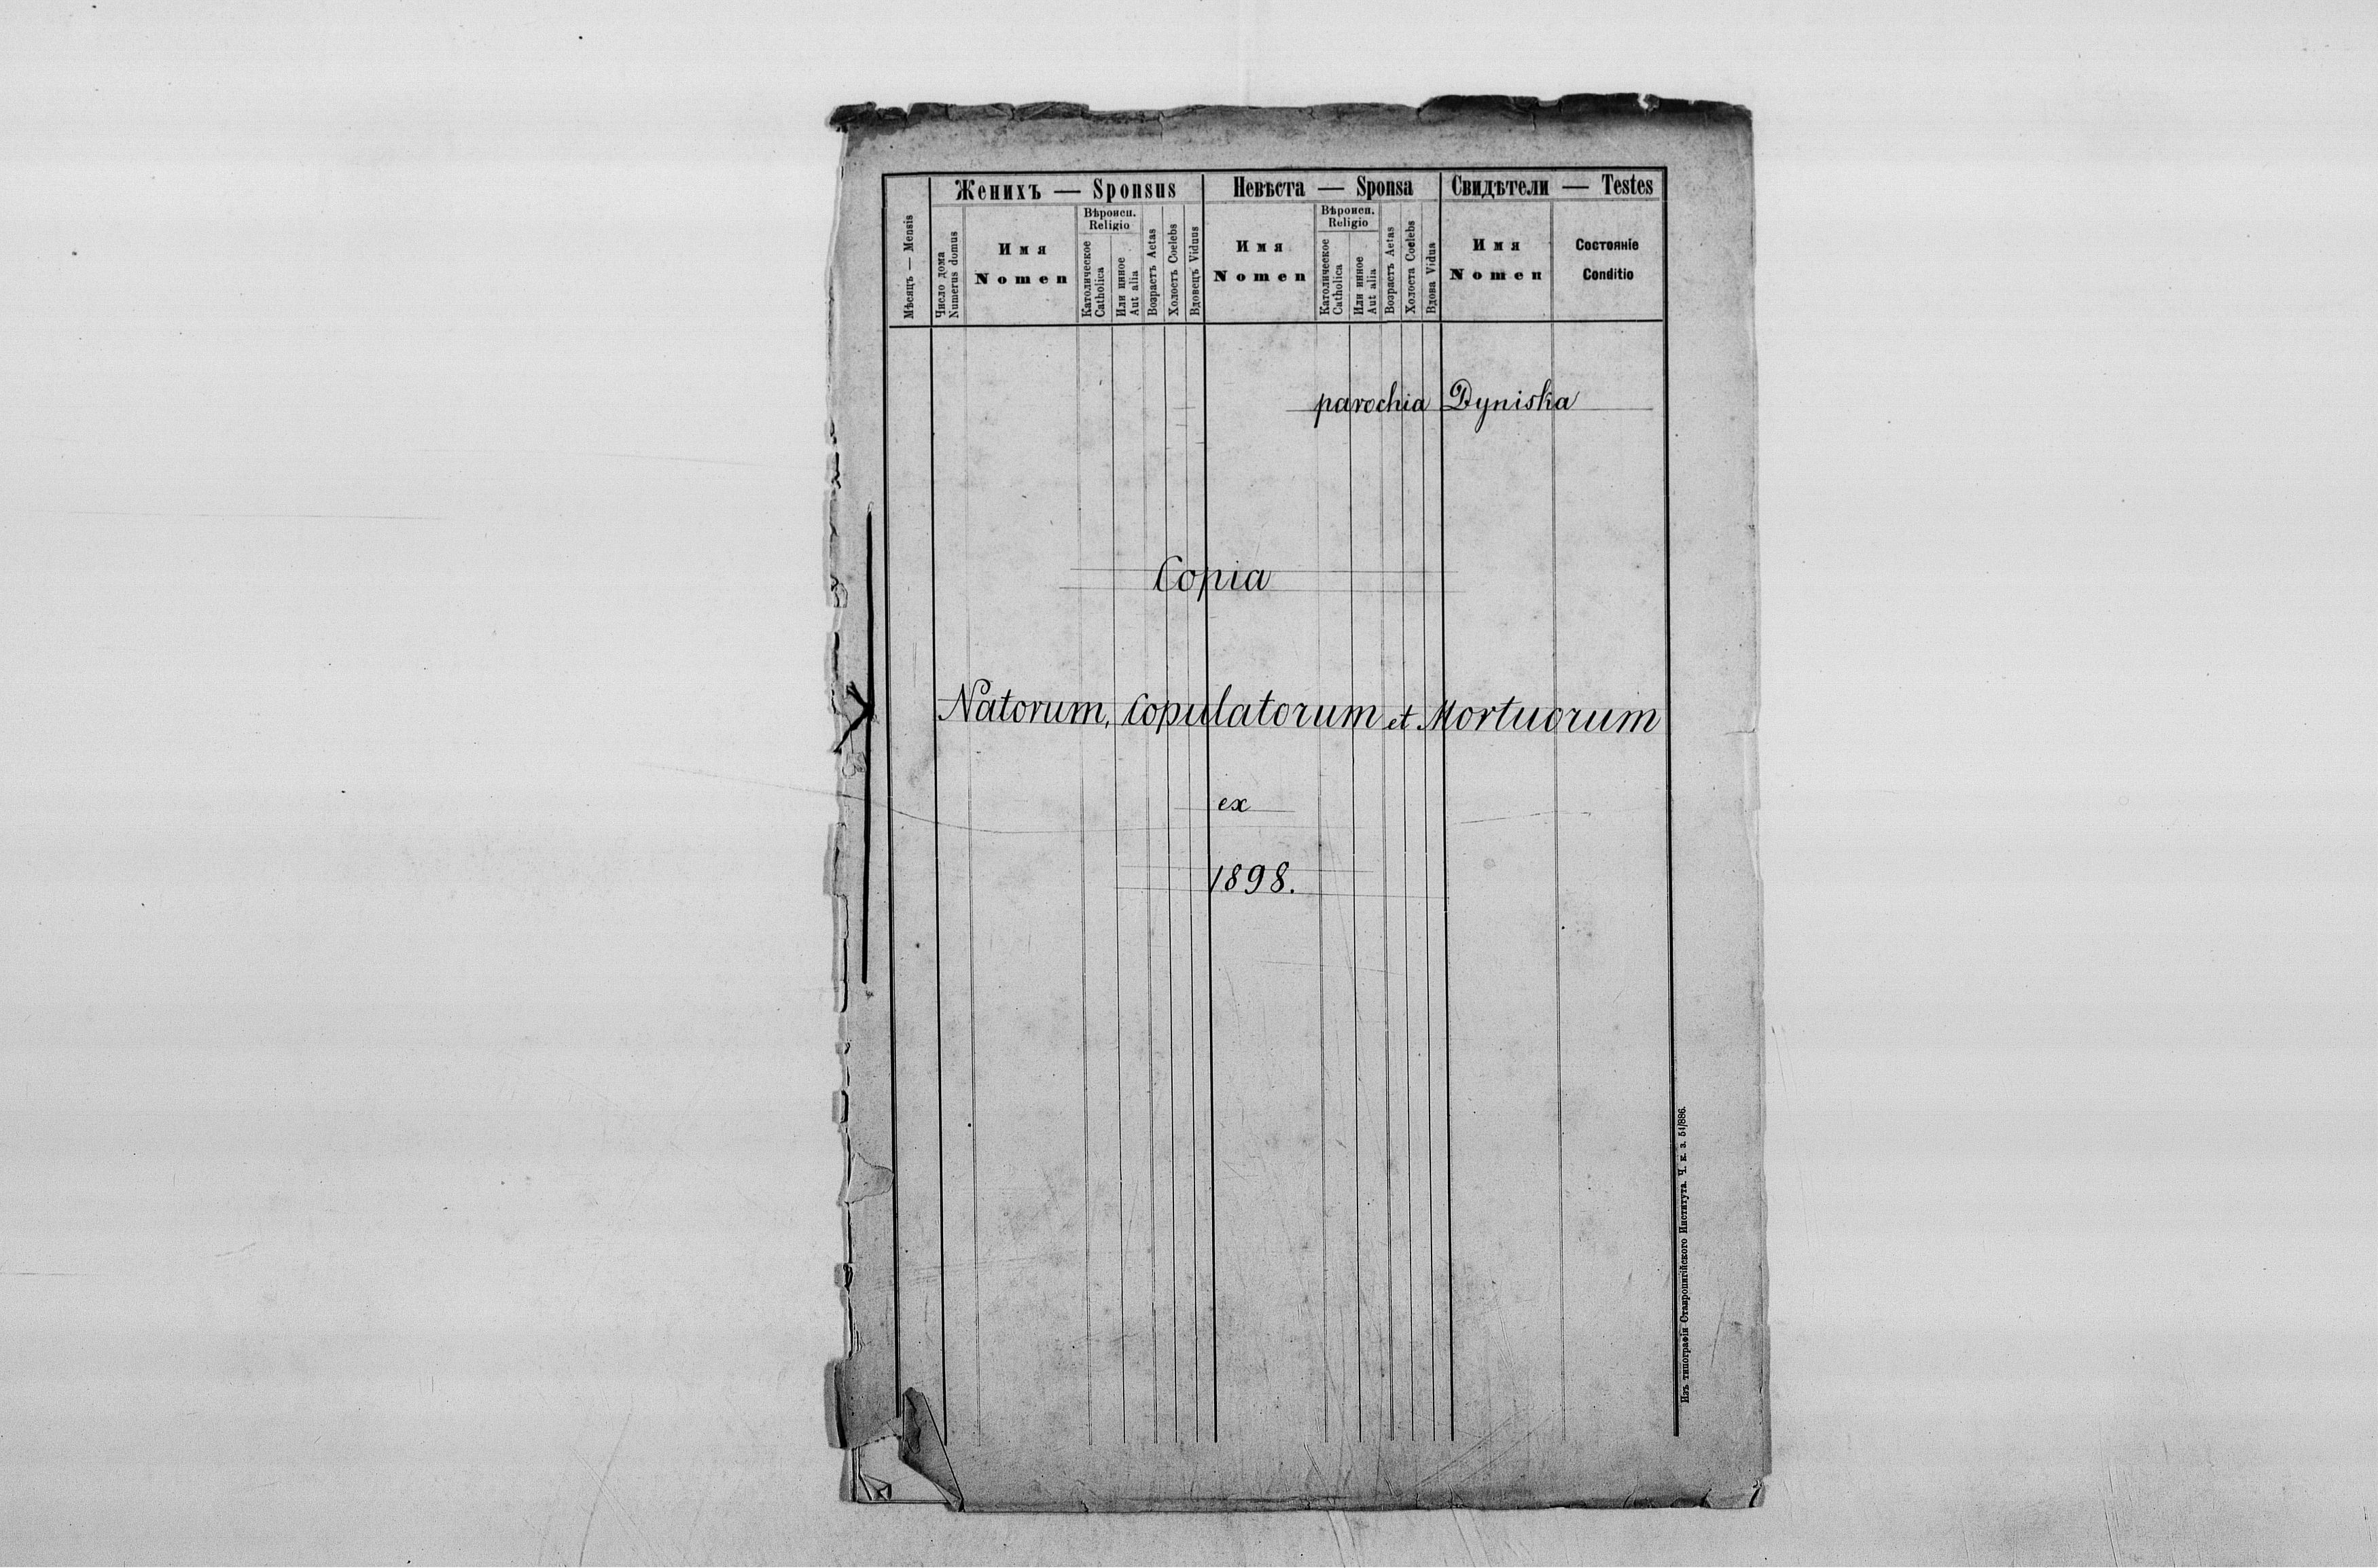 Женихъ — Sponsus
Невѣста — Sponsa
Свидѣтели — Testes
Мѣсяцъ — Mensis
Число дома
Numerus domus
Имя
Nomen
Вѣроисп.
Religio
Католическое
Catholica
Или инное
Aut alia
Возрастъ Aetas
Холостъ Coelebs
Вдовецъ Viduus
Имя
Nomen
Вѣроисп.
Religio
Католическое
Catholica
Или инное
Aut alia
Возрастъ Aetas
Холоста Coelebs
Вдова Vidua
Имя
Nomen
Состояніе
Conditio
parochia Dyniska
Copia
Natorum, Copulatorum et Mortuorum
ex
1898.
Изъ типографіи Ставропигійского Института. Ч. к. з. 51/886.